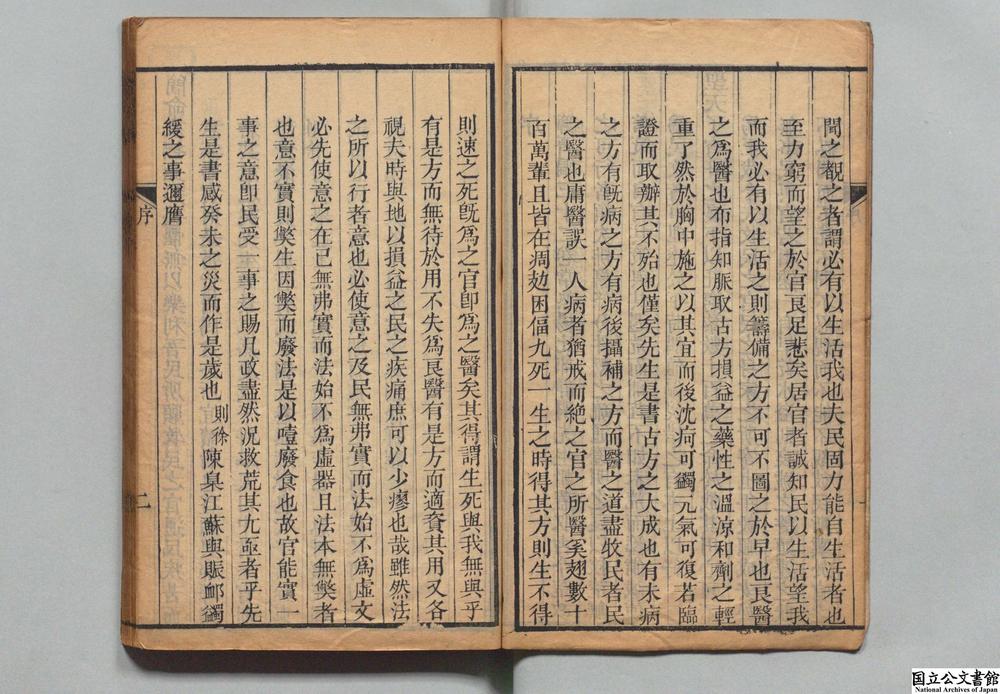 閒之覩之者謂必有以生活我也夫民固力能自生活者也
至力窮而望之於官艮足悲矣居官者誠知民以生活望我
而我必有以生活之則籌備之方不可不圖之於早也艮醫
之爲醫也布指知脈取古方損益之藥性之溫涼和劑之輕
重了然於胸中施之以其宜而後沈疴可蠲元氣可復若臨
證而取辦其不殆也僅矣先生是書古方之大成也有未病
之方有旣病之方有病後攝補之方而醫之道盡牧民者民
之醫也庸醫誤一人病者猶戒而絶之官之所醫奚翅數十
百萬輩且皆在凋攰困偪九死一生之時得其方則生不得
則速之死旣爲之官卽爲之醫矣其得謂生死與我無與乎
有是方而無待於用不失爲艮醫有是方而適資其用又各
視夫時與地以損益之民之疾痛庶可以少瘳也哉雖然法
之所以行者意也必使意之及民無弗實而法始不爲虛文
必先使意之在已無弗實而法始不爲虛器且法本無獘者
也意不實則獘生因獘而廢法是以噎廢食也故官能實一
事之意卽民受一事之賜凡政盡然況救荒其尤亟者乎先
生是書感癸未之災而作是歲也則徐陳臬江蘇與賑䘏蠲
緩之事邇膺
序
二
国立公文書館
National Archives of Japan